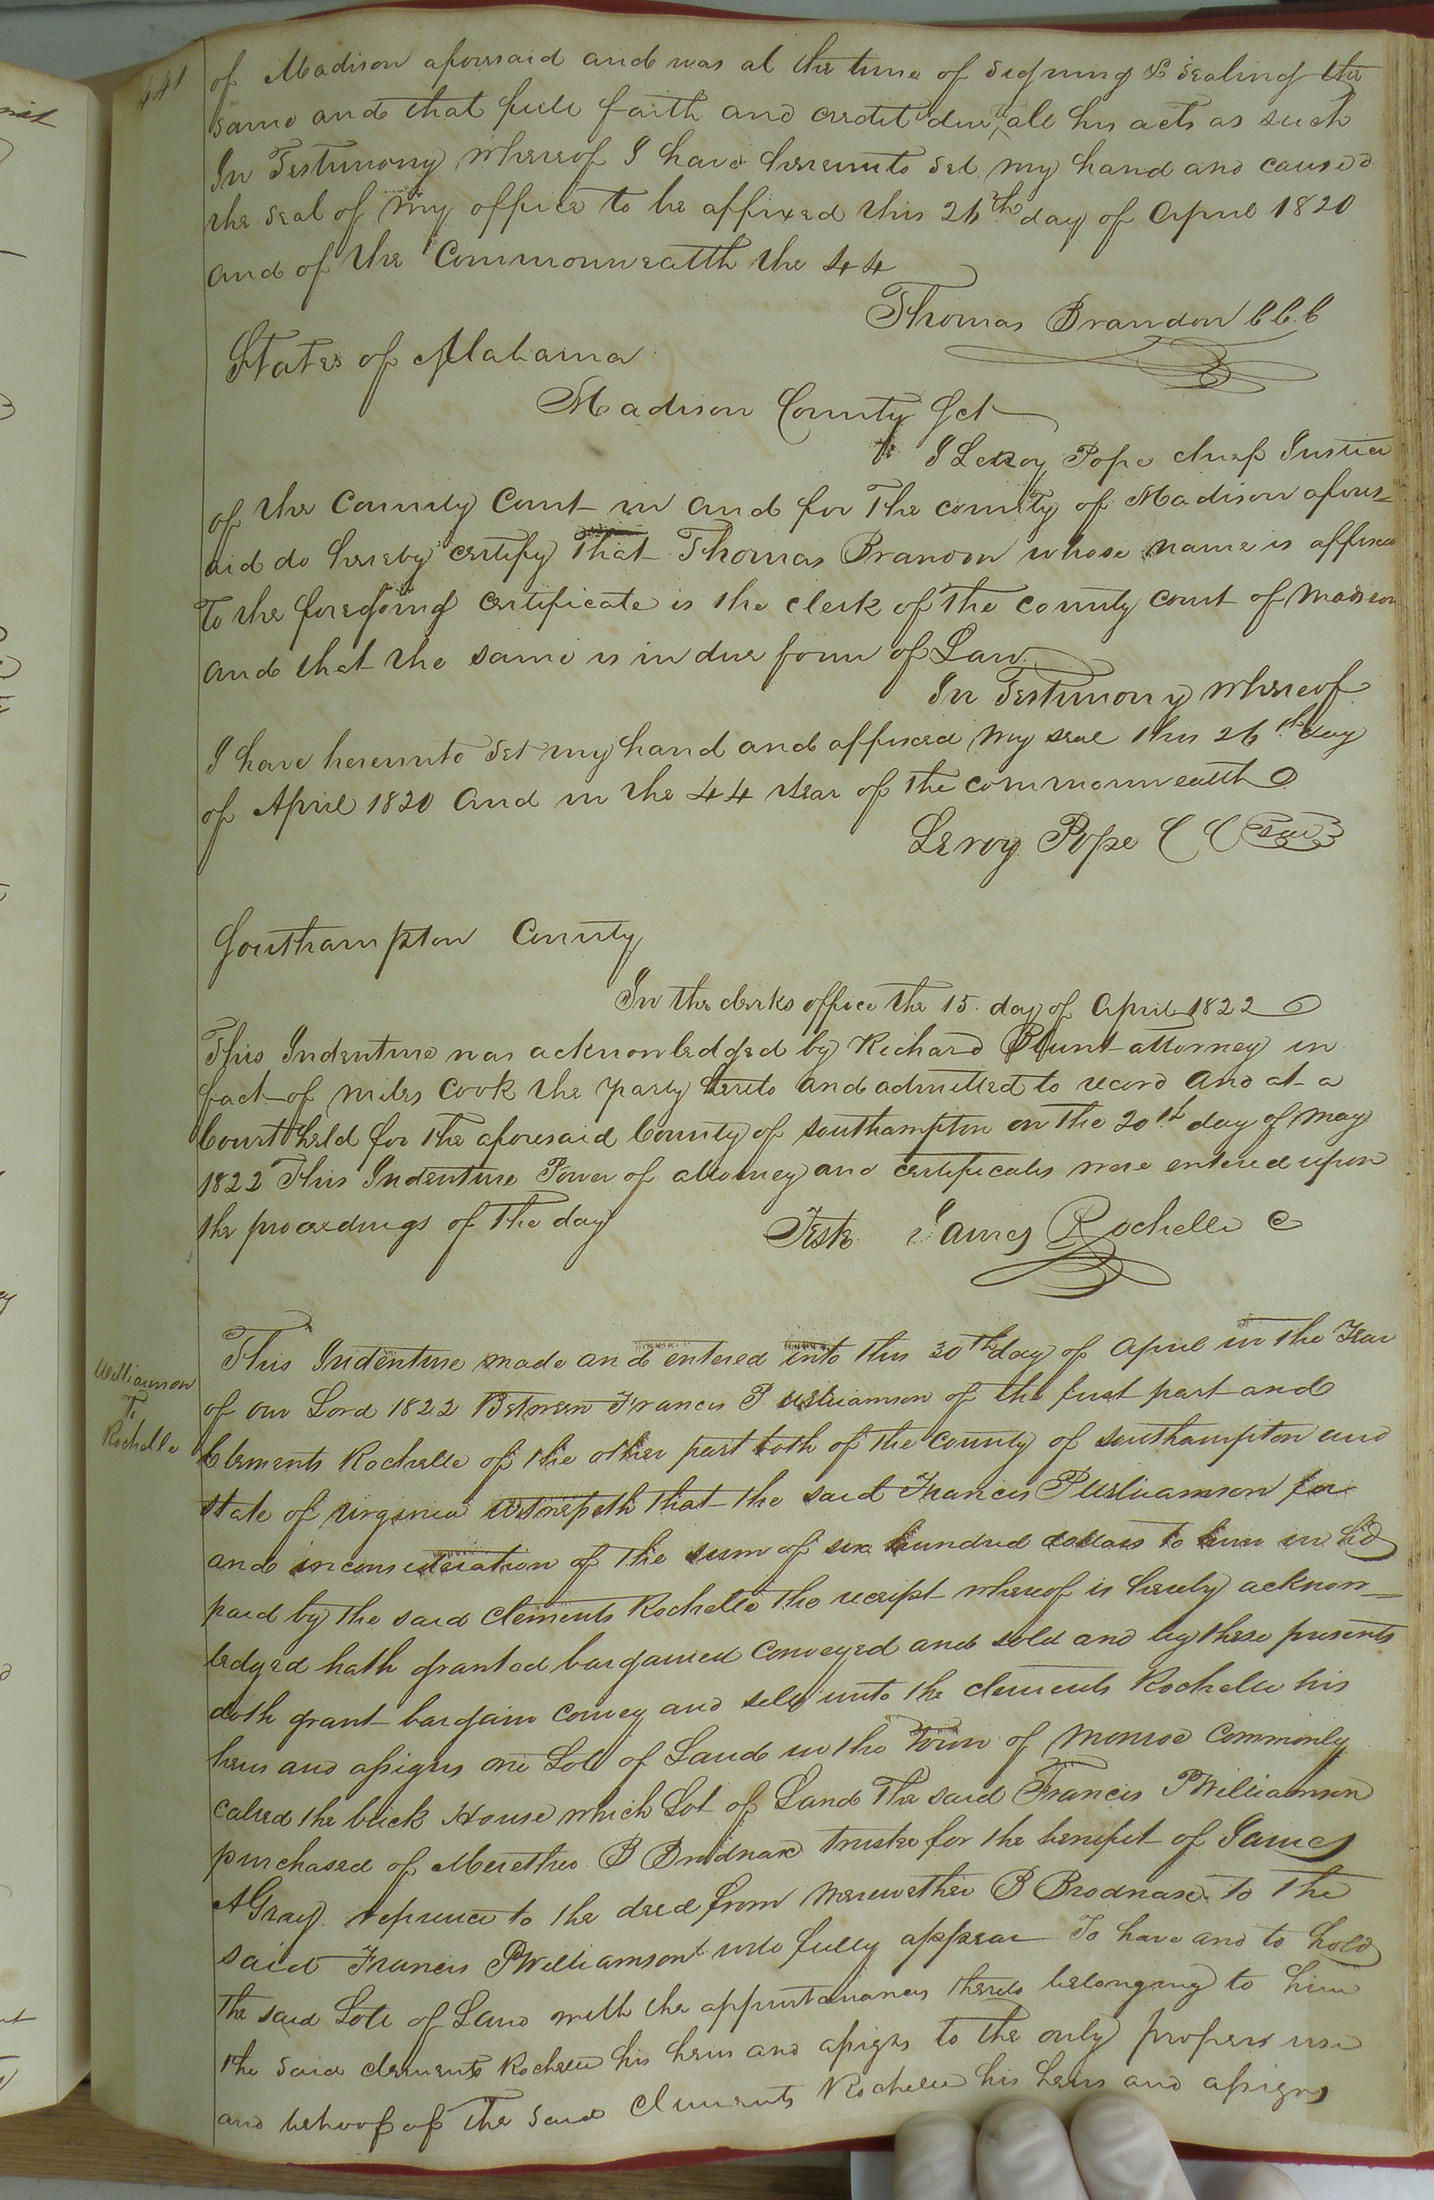 441
of Madison aforesaid and was at the time of signing & sealing the
same and that full faith and credit due to all his acts as such
In Testimony whereof I have hereunto set my hand and caused
the seal of my office to be affixed this 26th day of April 1820
and of the Commonwealth the 44
Thomas Brandon C C C
States of Alabama
Madison County Sct
I Leroy Pope chief Justice
of the County Court in and for The county of Madison afores-
aid do hereby certify That Thomas Brandon whose name is affixed
To the foregoing certificate is the clerk of the county court of Madison
and that the same is in due form of Law
In Testimony whereof
I have hereunto set my hand and affixed my seal this 26th day
of April 1820 and in the 44 year of the commonwealth
Leroy Pope C C Seal
Southampton County
In the clerks office the 15 day of April 1822
This Indenture was acknowledged by Richard Blunt attorney in
fact of Miles Cook the party hereto and admitted to record and at a
Court held for the aforesaid County of Southampton on the 20th day of May
1822 This Indenture Power of attorney and certificates were entered upon
the proceedings of the day
Teste James Rochelle C
Williamson
To
Rochelle
This Indenture made and entered into this 30th day of April in the Year
of our Lord 1822 Between Francis P Williamson of the first part and
Clements Rochelle of the other part both of the county of Southampton and
state of Virginia Witnesseth that the said Francis P Williamson for
and in consideration of the sum of six hundred dollars to him in hd
paid by the said Clements Rochelle the receipt whereof is hereby acknow-
ledged hath granted bargained conveyed and sold and by these presents
doth grant bargain convey and sell unto the clements Rochelle his
heirs and assigns one Lott of Land in the Town of Monroe commonly
called the brick House which Lot of Land The said Francis P Williamson
purchased of Merethew B Brodnax trustee for the benefit of James
A Gray referrence to the deed from Merewether B Brodnax to the
said Francis P Williamson will fully appear To have and to hold
The said Lott of Land with the appurtanances thereto belonging to him
the said Clements Rochelle his heirs and assigns to the only proper use
and behoof of The said Clements Rochelle his heirs and assigns